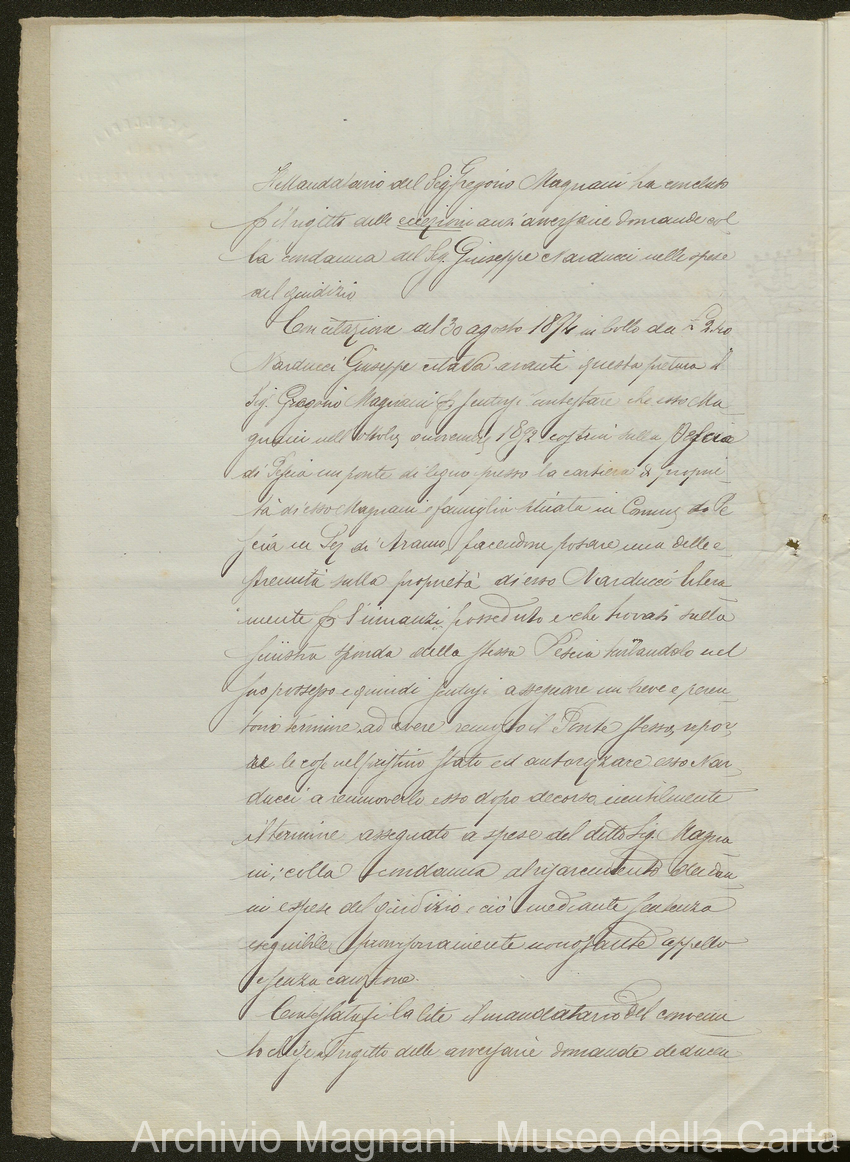 Il Mandatario del Sig Gregorio Magnani ha concluso
p il rigetto delle eccezioni anzi avversarie domande col
la condanna del Sig. Giuseppe Narducci nelle spese
del giudizio
Con citazione del 30 agosto 1874 in bollo da £ 2.40
Narducci Giuseppe citava avanti questa pretura il
Sig. Gregorio Magnani p sentirsi contestare che esso Ma-
gnani nell'ottobre o novembre 1892 costruì sulla Pescia
di Pescia un ponte di legno presso la cartiera di proprie-
tà di esso Magnani e famiglia situata in Comune di Pe
scia in Sez di Aramo, facendone posare una delle e
stremità sulla proprietà di esso Narducci libera
mente p l'innanzi posseduto e che trovasi sulla
sinistra sponda della stessa Pescia turbandolo nel
suo possesso e quindi sentirsi assegnare un breve e peren-
torio termine ad avere remosso il Ponte stesso, ripor-
re le cose nel pristino stato ed autorizzare esso Nar
ducci a remuoverlo esso dopo decorso inutilmente
il termine assegnato a spese del detto Sig. Magna
ni; colla condanna al risarcimento dei dan
ni e spese del giudizio e ciò mediante sentenza
eseguibile provvisoriamente nonostante appello
e senza cauzione.
Contestatasi la lite il mandatario del convenu
to chiese il rigetto delle avversarie domande deducen
Archivio Magnani - Museo della Carta